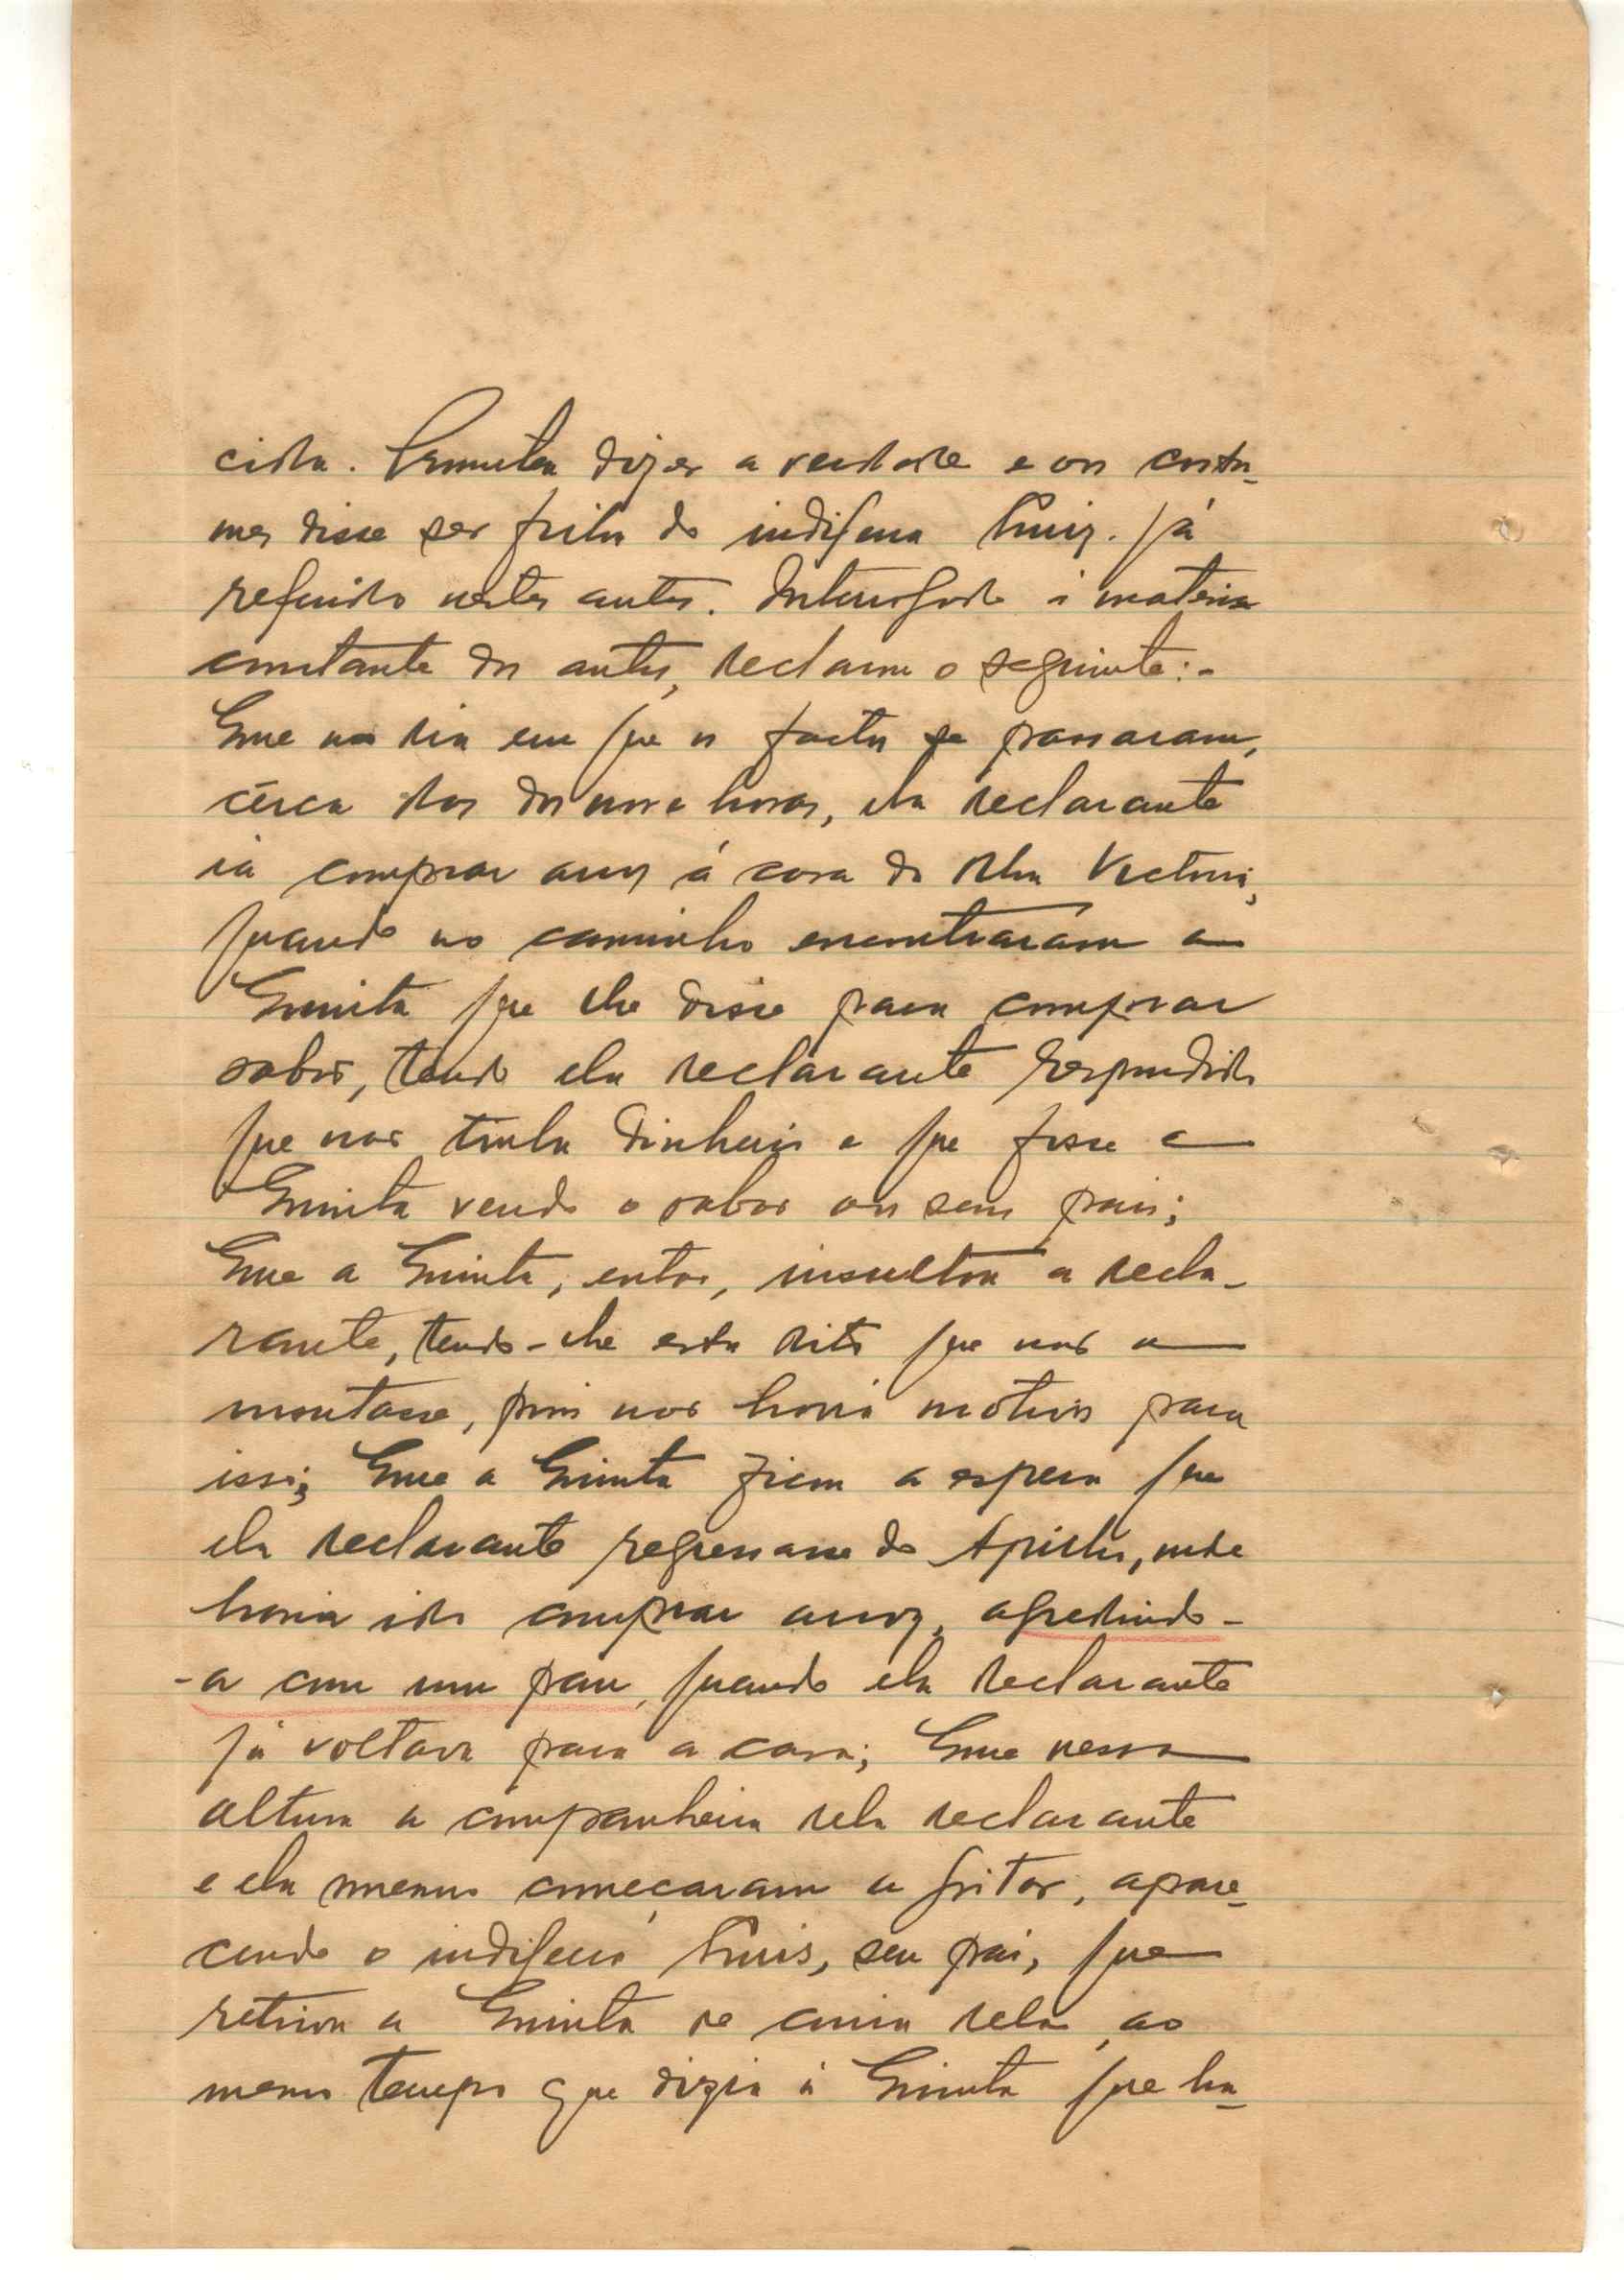 cida. Prometeu dizer a verdade e aos costu-
mes disse ser filha do indígena Luiz. já
referido nestes autos. Interrogada à materia
constante dos autos, declarou o seguinte:-
Que no dia em que os factos se passaram,
cêrca das dezanove horas, ela declarante
ia comprar arroz á casa do Victoria,
quando no caminho encontraram a
Quinita que lhe disse para comprar
sabão, tendo ela declarante respondido
que não tinha dinheiro e que fosse a
Quinita vender o sabão aos seus pais;
Que a Quinita, então, insultou a decla-
rante, tendo-lhe esta dito que não a
insultasse, pois não havia motivos para
isso; Que a Quinita ficou a espera que
ela declarante regressasse do onde
havia ido comprar arroz, agredindo-
-a com um pau, quando ela declarante
já voltava para a casa; Que nessa
altura a companheira dela declarante
e ela mesma começaram a gritar, apare-
cendo o indígena Luis, seu pai, que
retirou a Quinita de cima dela, ao
mesmo tempo que dizia á Quinita que ha-